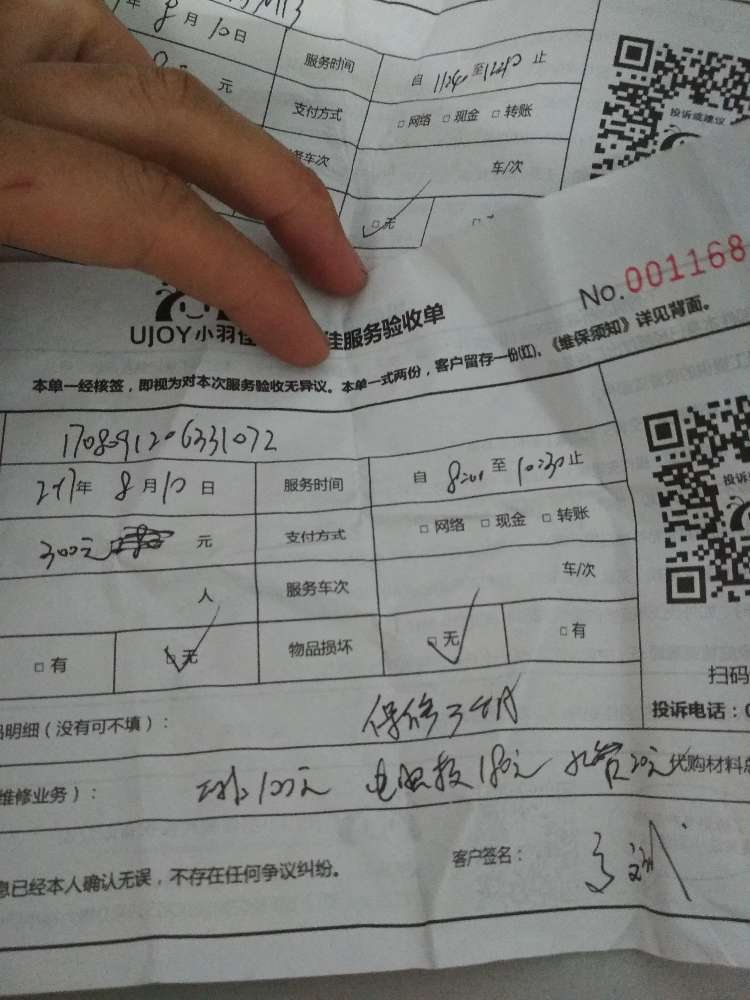 年 8月10日 服务时间 自 11:40 至 12:40 止
元 支付方式 □网络 □现金 □转账
投诉或建议
务车次 车/次
□无
No.001168
UJOY小羽佳 佳服务验收单
本单一经核签，即视为对本次服务验收无异议。本单一式两份，客户留存一份(红)。《维保须知》详见背面。
1708091206331072
2017年 8月10日 服务时间 自 8:00 至 10:30 止
投诉
300元 元 支付方式 □网络 □现金 □转账
人 服务车次 车/次
□有 □无 物品损坏 □无 □有
扫码
明细（没有可不填）： 保修3个月
投诉电话：0
维修业务）： 100元 电脑板180元 水管20元 代购材料总
息已经本人确认无误，不存在任何争议纠纷。 客户签名：